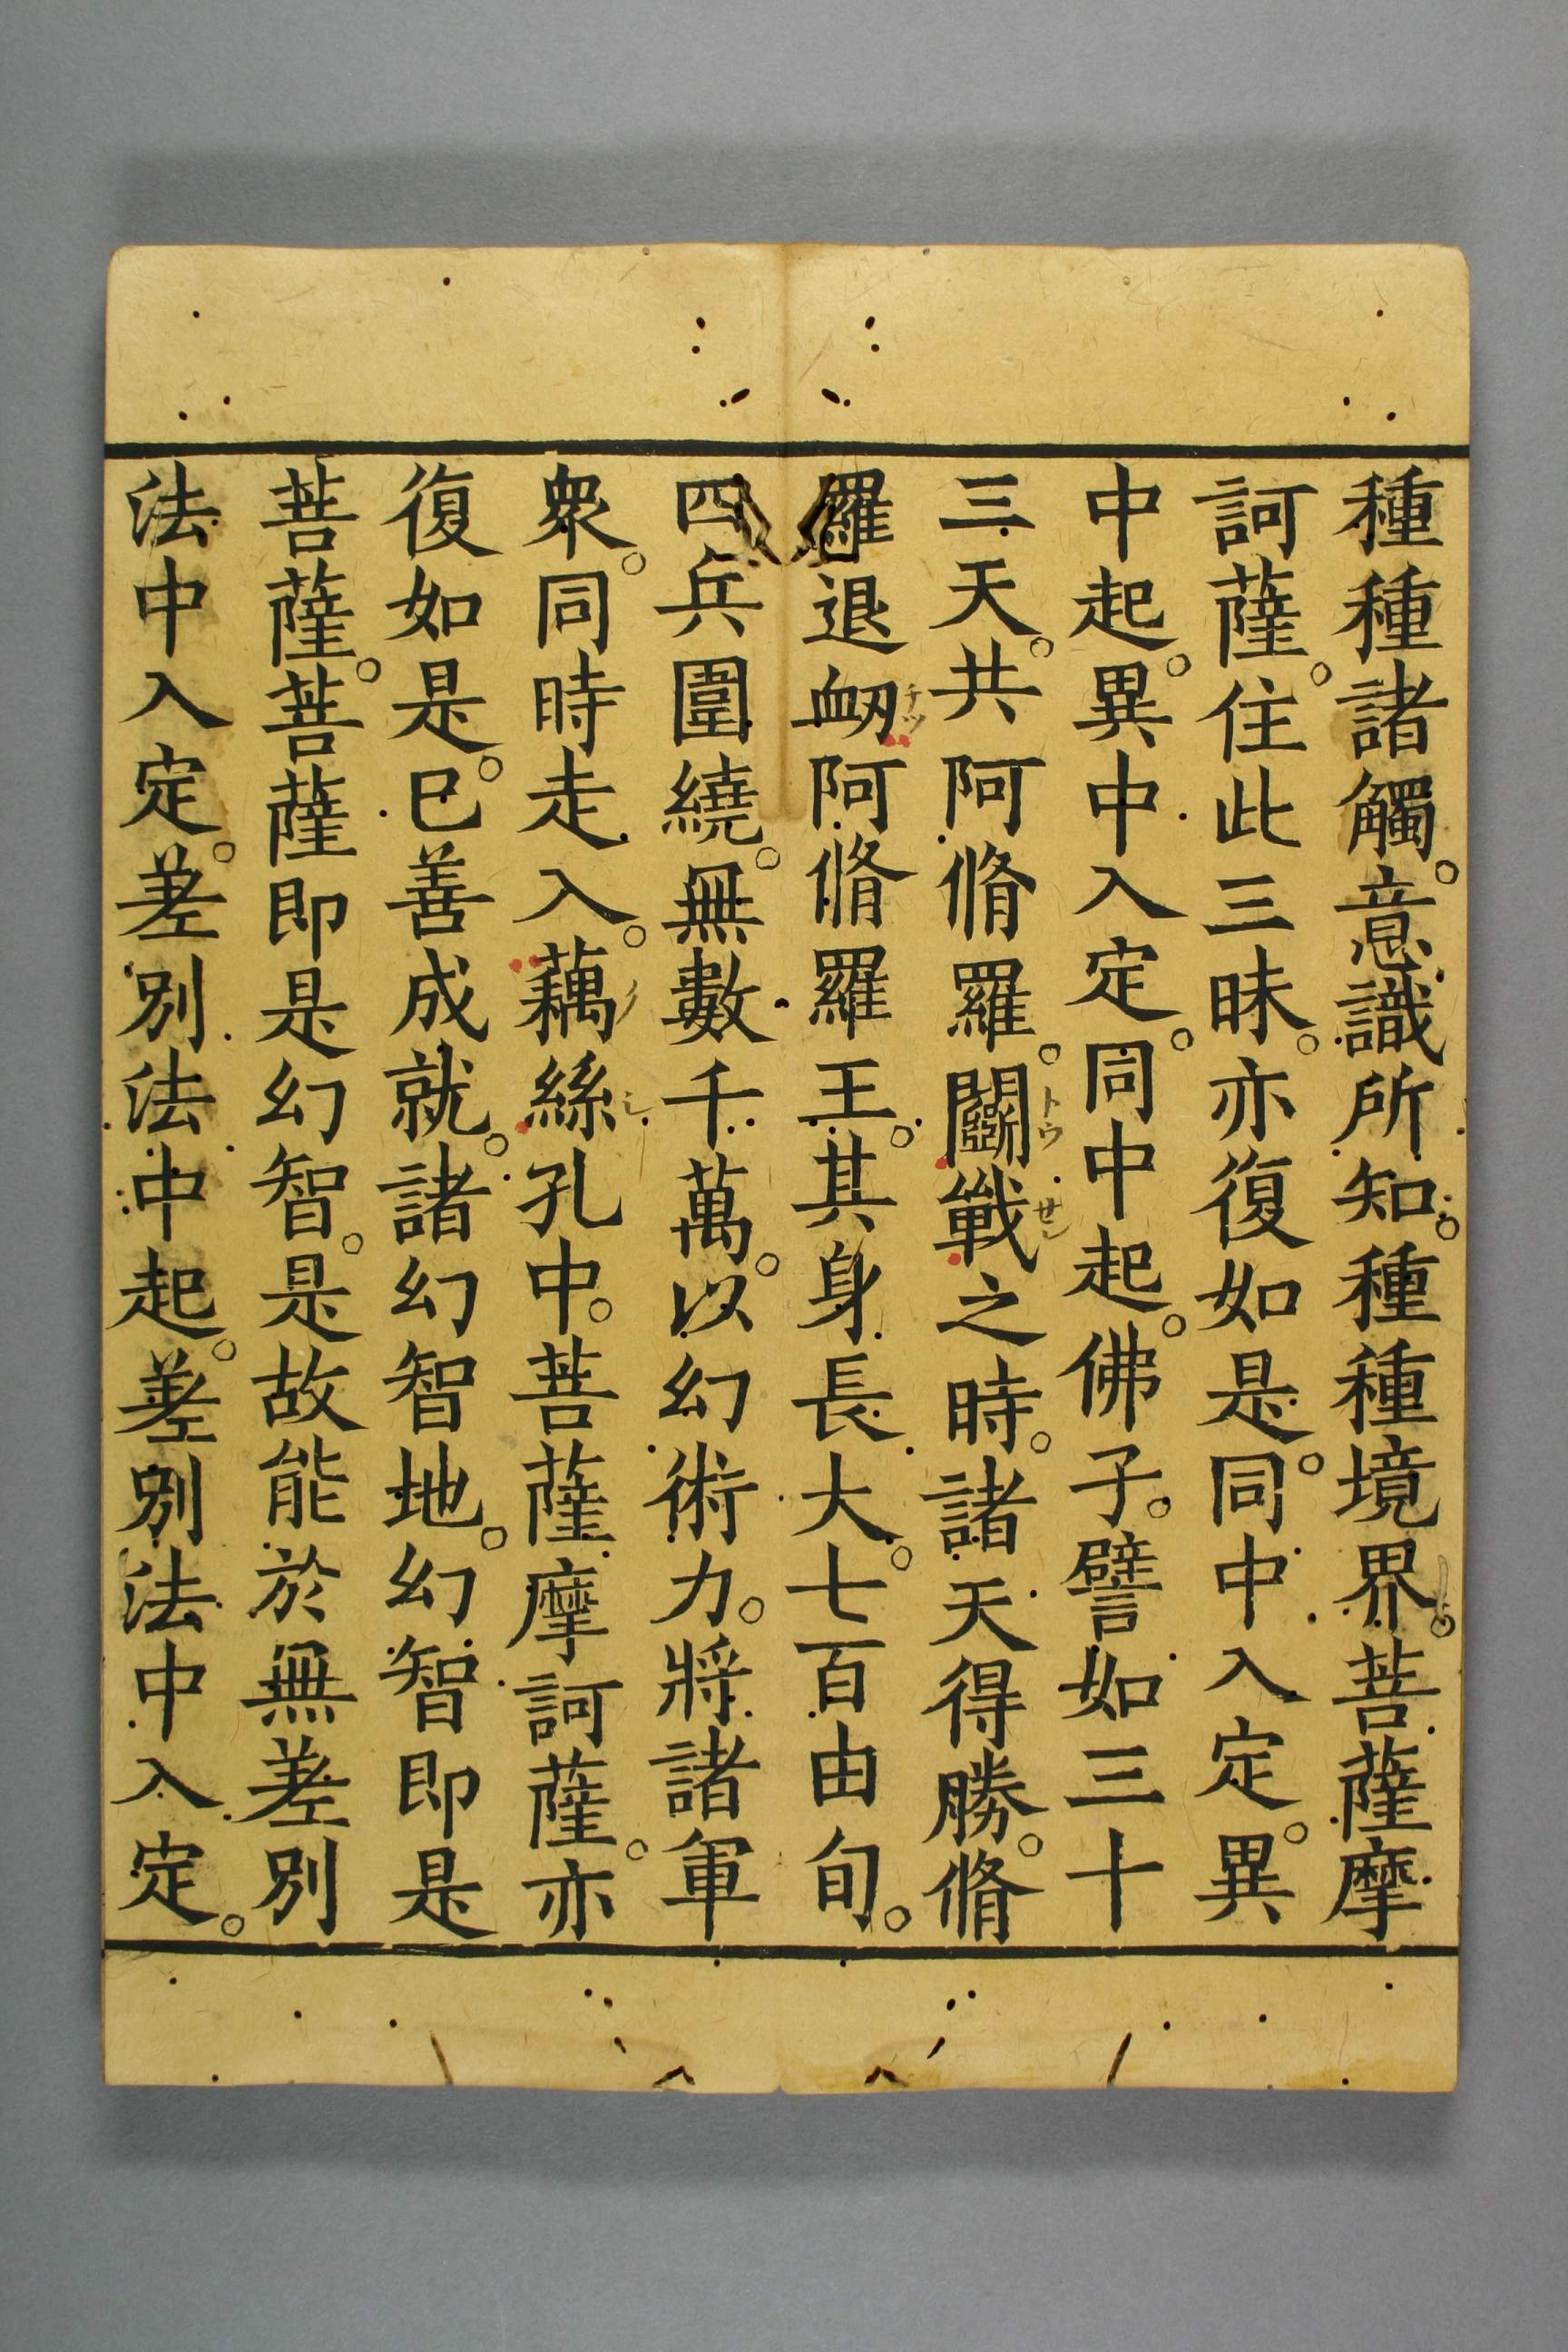 種種諸觸。意識所知。種種境界。菩薩摩
訶薩。住此三昧。亦復如是。同中入定。異
中起。異中入定。同中起。佛子。譬如三十
三天。共阿脩羅。鬬戰之時。諸天得勝。脩
トウ
せン
羅退衂。阿脩羅王。其身長大。七百由旬。
チツ
四兵圍繞。無數千萬。以幻術力。將諸軍
衆。同時走入。藕絲孔中。菩薩摩訶薩。亦
復如是。已善成就。諸幻智地。幻智即是
菩薩。菩薩即是幻智。是故能於無差別
法中入定。差別法中起。差別法中入定。